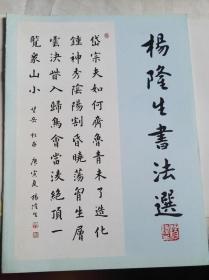 楊隆生書法選
岱宗夫如何齊魯青未了造化
鍾神秀陰陽割昏曉蕩胷生層
雲決眥入歸鳥會當凌絕頂一
覽衆山小 望岳 杜甫 庚寅夏 楊隆生